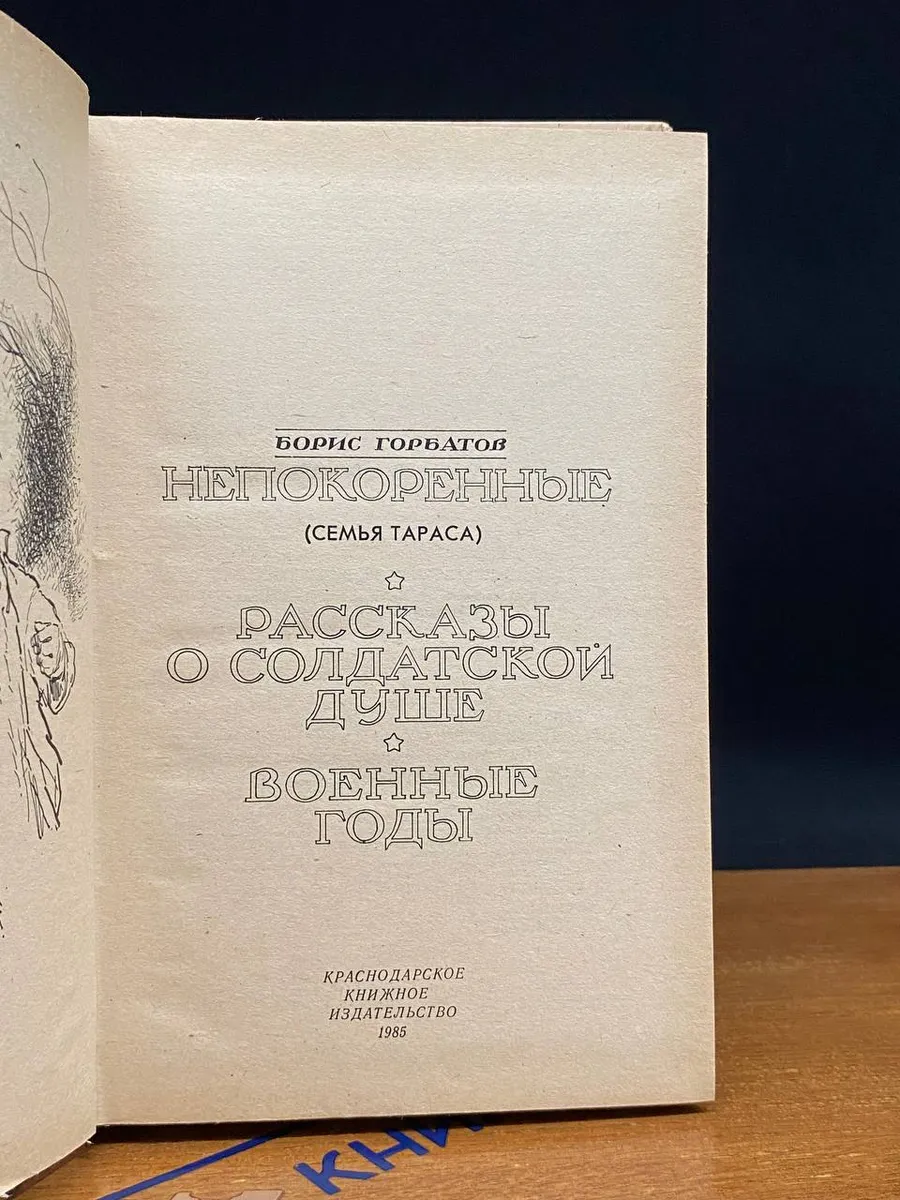 БОРИС ГОРБАТОВ
НЕПОКОРЕННЫЕ
(СЕМЬЯ ТАРАСА)
РАССКАЗЫ
О СОЛДАТСКОЙ
ДУШЕ
ВОЕННЫЕ
ГОДЫ
КРАСНОДАРСКОЕ
КНИЖНОЕ
ИЗДАТЕЛЬСТВО
1985